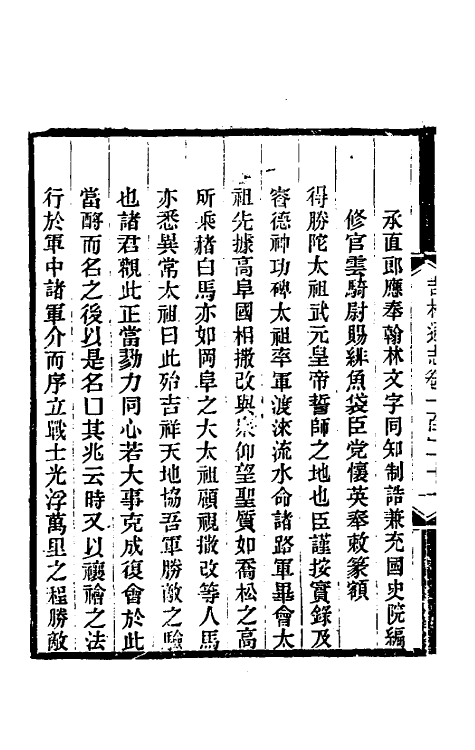 承直郎應奉翰林文字同知制誥兼充國史院編
修官雲騎尉賜緋魚袋臣党懷英奉敕篆額
得勝陀太祖武元皇帝誓師之地也臣謹按實錄及
睿德神功碑太祖率軍渡淶流水命諸路軍畢會太
祖先據高阜國相撒改與衆仰望聖質如喬松之高
所乘赭白馬亦如岡阜之大太祖顧視撒改等人馬
亦悉異常太祖曰此殆吉祥天地協吾軍勝敵之驗
也諸君觀此正當勠力同心若大事克成復會於此
當酹而名之後以是名口其兆云時又以禳禬之法
行於軍中諸軍介而序立戰士光浮萬里之程勝敵
吉林通志卷一百二十